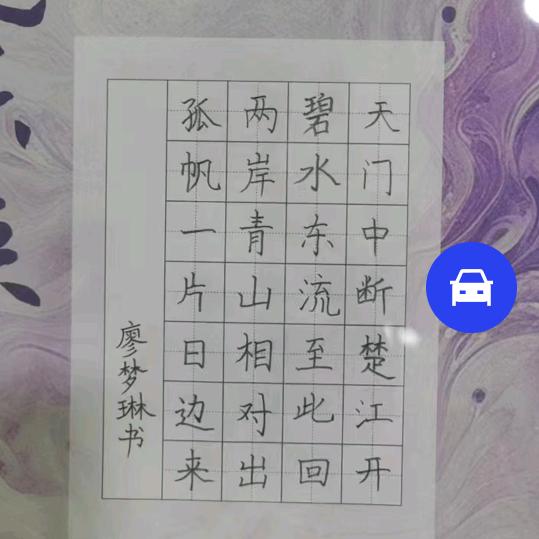 天门中断楚江开
碧水东流至此回
两岸青山相对出
孤帆一片日边来
廖梦琳书